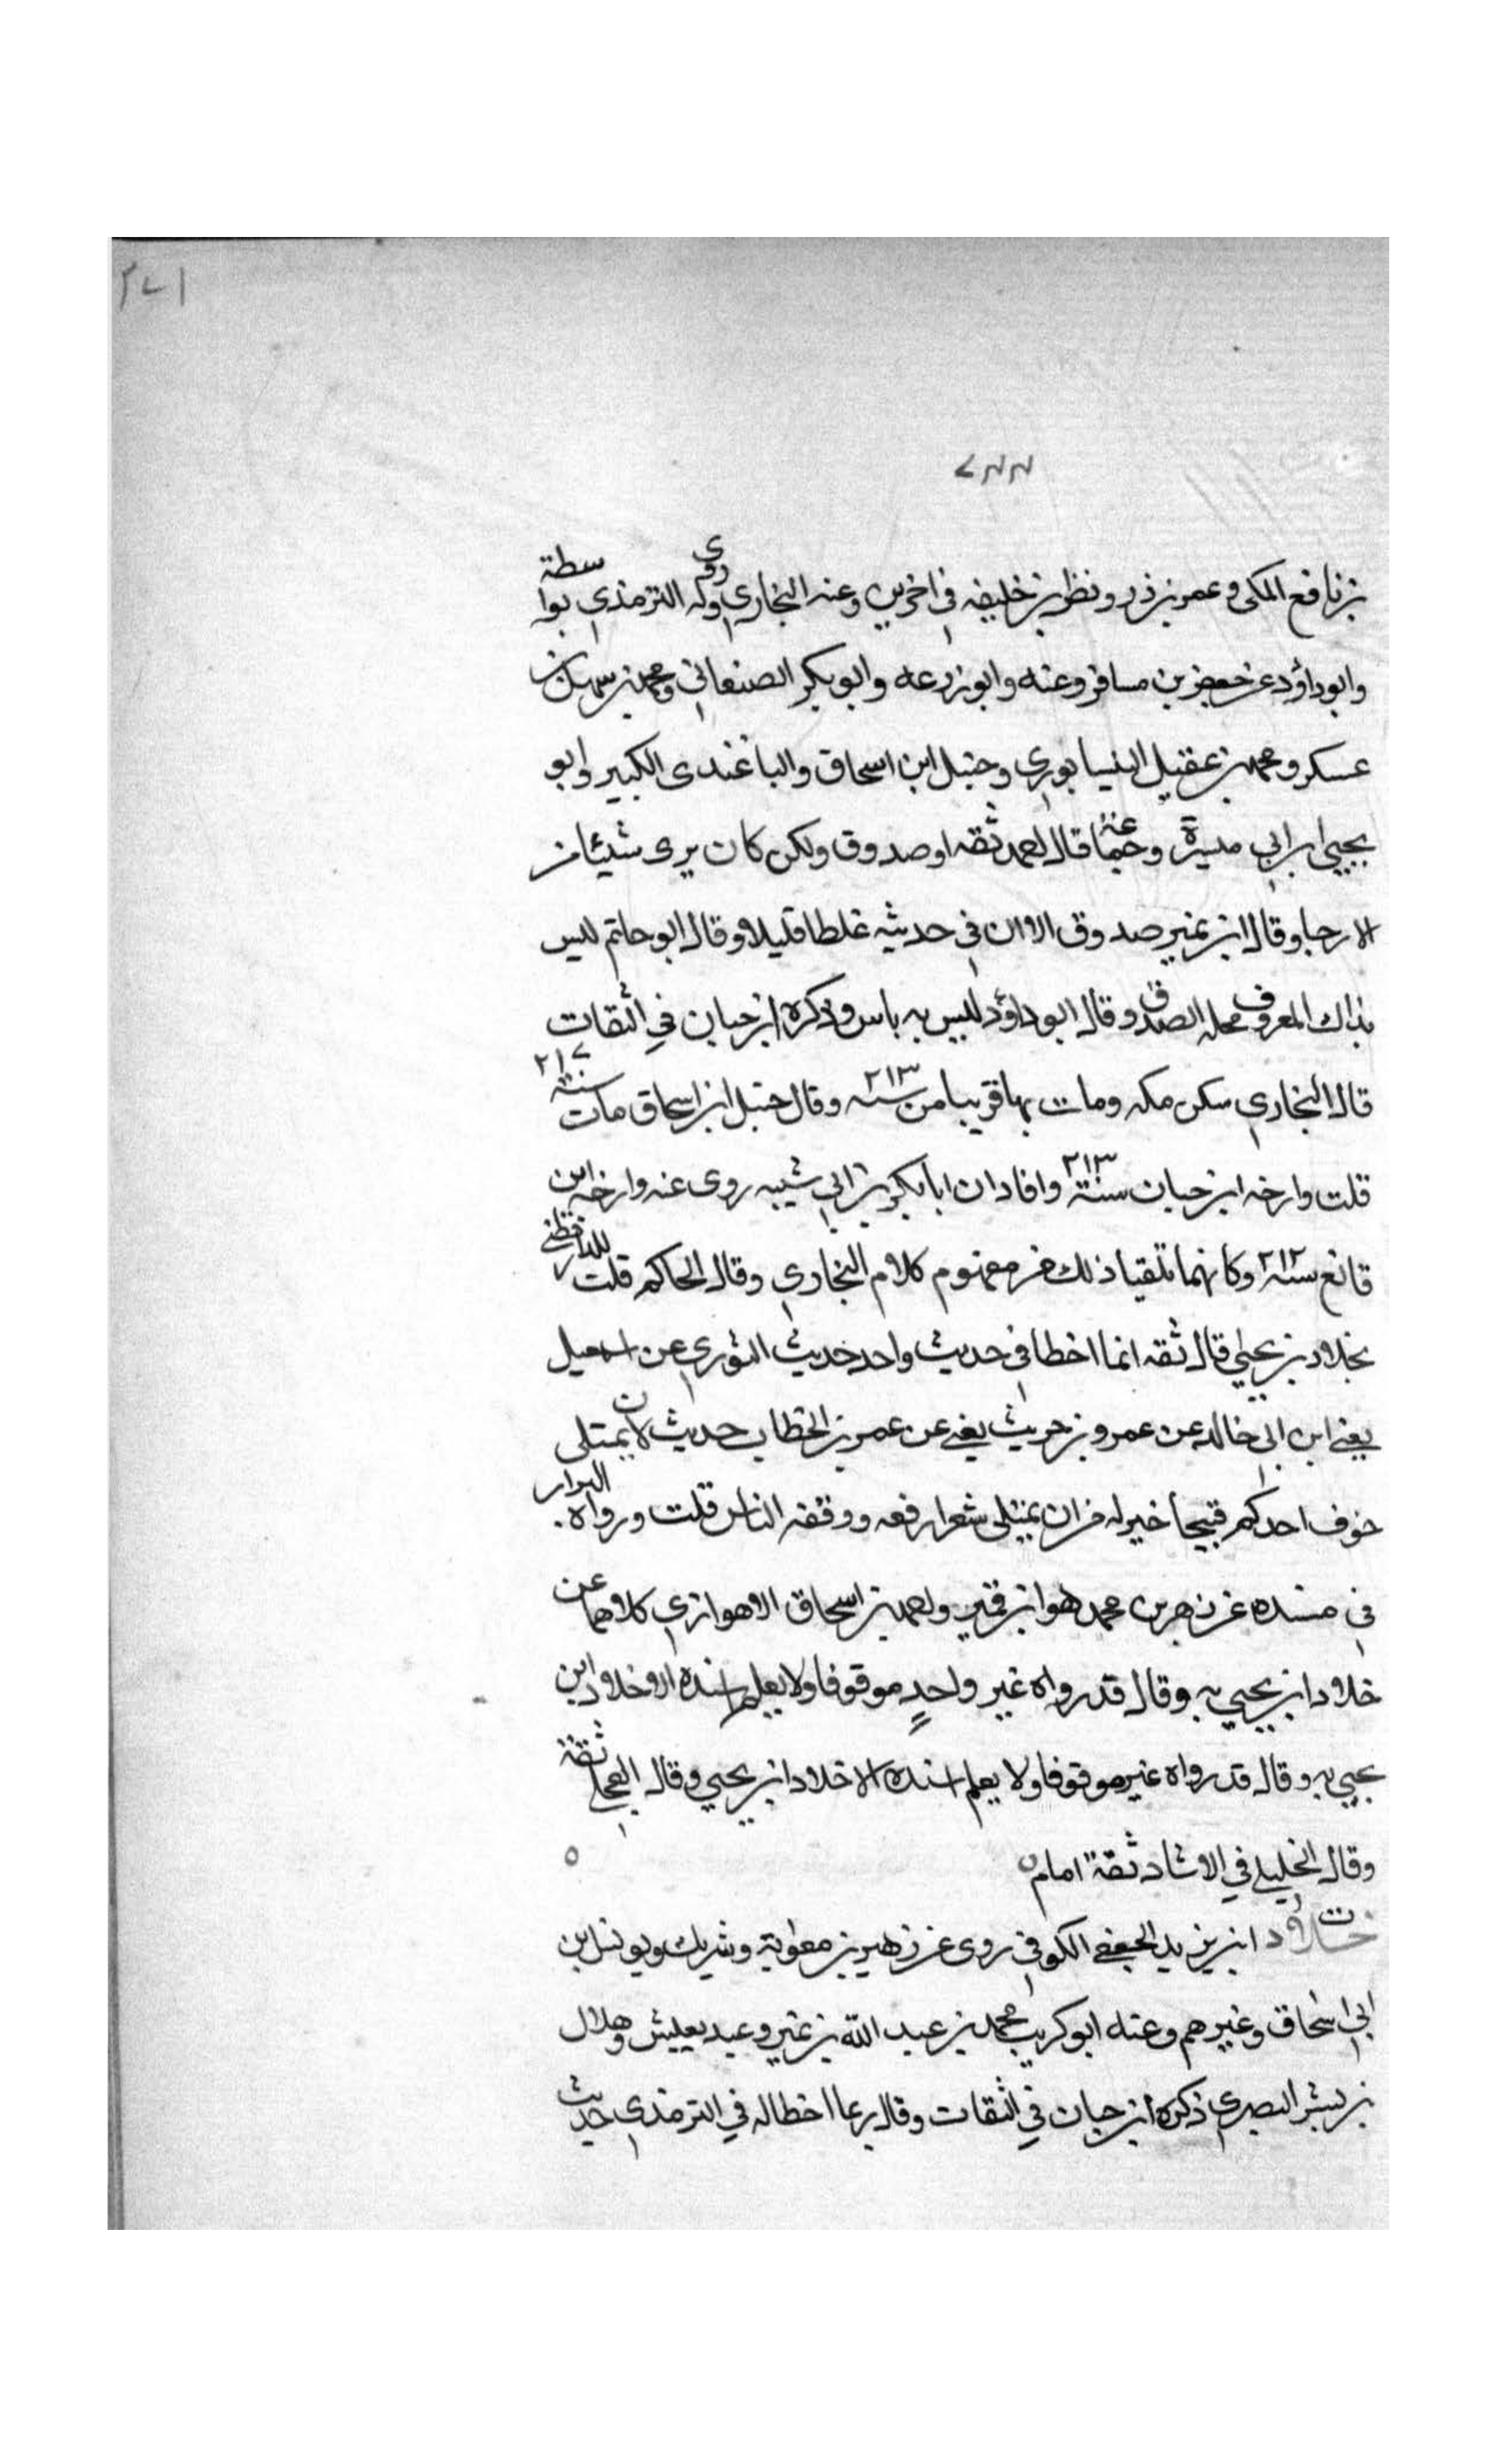 ٢٧١
٧٣٣
بن نافع المكى وعمر بن ذر ونظر بن خليفه في اخرين وعنه البخاري وله روى الترمذي بواسطة
وابو داؤد عن جعفر بن مسافر وعنه وابو زرعه وابو بكر الصنعاني ومحمد بن سهل بن
عسكر ومحمد بن عقيل النيسابوري وحنبل ابن اسحاق والباغندى الكبير وابو
يحيي ابن ابي ميسرة وجماعة قال احمد ثقه او صدوق ولكن كان يرى شيئا من
الارجا وقال ابن نمير صدوق الا ان في حديثه غلطا قليلا وقال ابو حاتم ليس
بذاك المعروف محله الصدق وقال ابو داؤد ليس به باس وذكره ابن حبان في الثقات
قال البخاري سكن مكه ومات بها قريبا من سنه ٢١٣ وقال حنبل ابن اسحاق مات سنة ٢١٧
قلت وارخه ابن حبان سنة ٢١٣ وافاد ان ابا بكر بن ابي شيبه روى عنه وارخه ابن
قانع سنة ٢١٢ وكانهما تلقيا ذلك من مفهوم كلام البخاري وقال الحاكم قلت للدارقطني
بخلاد بن يحيي قال ثقه انما اخطا في حديث واحد حديث الثوري عن اسمعيل
يعني ابن ابي خالد عن عمرو بن حريث يعني عن عمر بن الخطاب حديث لان يمتلى
جوف احدكم قيحا خير له من ان يمتلي شعرا رفعه ووقفه الناس قلت ورواه البزار
في مسنده عن زهير بن محمد هو ابن قمير واحمد بن اسحاق الاهوازي كلاهما عن
خلاد ابن يحيي به وقال قد رواه غير واحدٍ موقوفا ولا يعلم اسنده الا خلاد ابن
يحيي به وقال قد رواه غير موقوفا ولا يعلم اسنده الا خلاد ابن يحيي وقال العجلي ثقة
وقال الخليلي في الارشاد ثقة امام ٥
ت خلاد ابن يزيد الجعفي الكوفي روى عن زهير بن معوية وشريك ويونس ابن
ابي اسحاق وغيرهم وعنه ابو كريب ومحمد بن عبد الله بن نمير وعبد يعيش وهلال
بن بشر البصري ذكره ابن حبان في الثقات وقال ربما اخطا له في الترمذي حديث